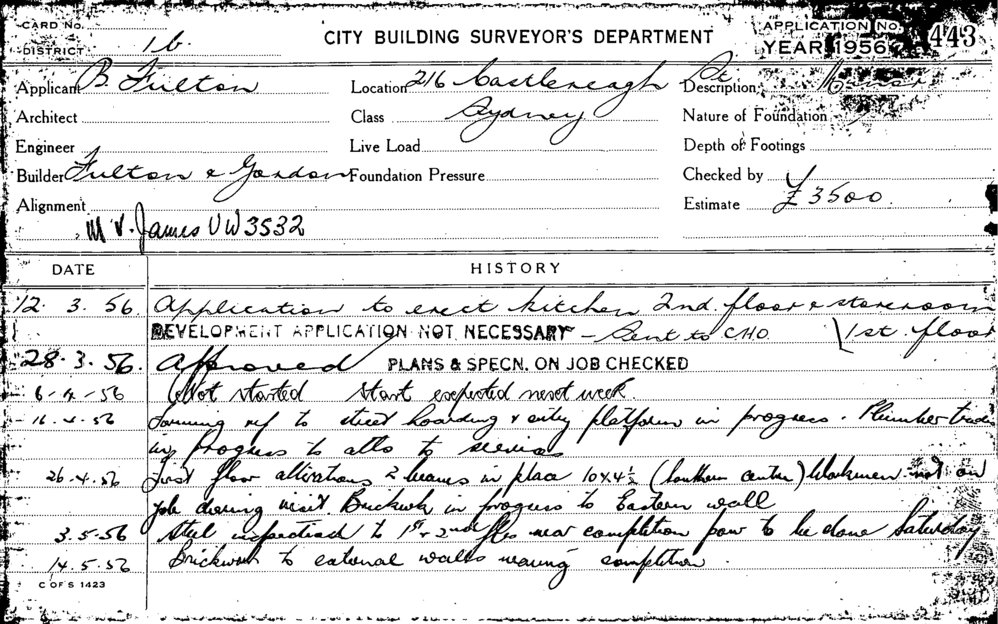 CARD No.
DISTRICT 1b.
CITY BUILDING SURVEYOR'S DEPARTMENT
APPLICATION No. 443
YEAR 1956
Applicant B. Fulton Location 216 Castlereagh St Description
Architect Class Sydney Nature of Foundation
Engineer Live Load Depth of Footings
Builder Fulton & Gordon Foundation Pressure Checked by
Alignment Estimate £3500.
Mr. James UW3532
DATE HISTORY
12. 3. 56 Application to erect kitchen 2nd. floor & storeroom
DEVELOPMENT APPLICATION NOT NECESSARY - Sent to C.H.O. 1st. floor
28. 3. 56. Approved PLANS & SPECN. ON JOB CHECKED
6-4-56 Not started Start expected next week.
4.56 ref to street hoarding & entry platform in progress. Plumber
in progress to alts to
26.4.56 First floor alterations 2 beams in place 10x4½ (Southern center) Workmen not on
job during visit. Brickwk in progress to Eastern wall
3.5.56 Steel inspected to 1st & 2nd fls near completion to be done Saturday
14.5.56 Brickwork to external walls nearing completion.
C OF S 1423